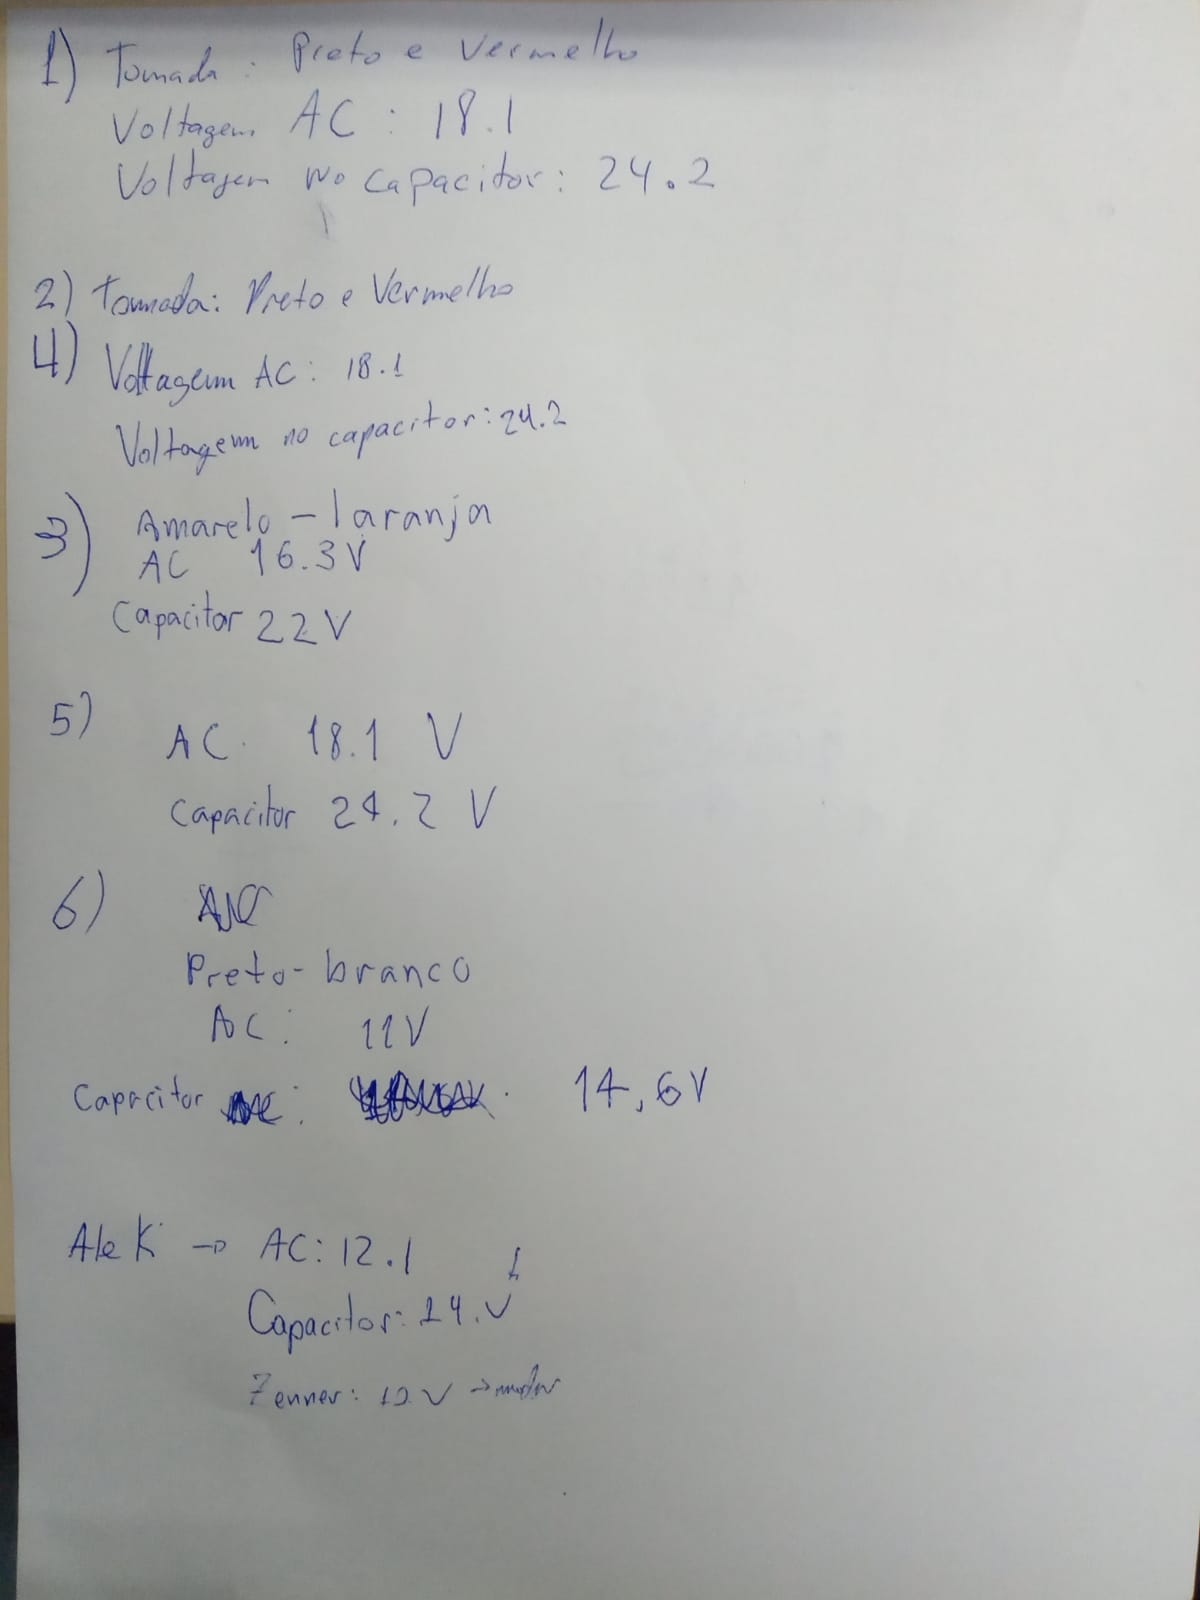 1) Tomada: Preto e Vermelho
Voltagem AC: 18.1
Voltagem no capacitor: 24.2
2) Tomada: Preto e Vermelho
4) Voltagem AC: 18.1
Voltagem no capacitor: 24.2
3) Amarelo - laranja
AC 16.3V
Capacitor 22V
5)
AC. 18.1 V
Capacitor 24.2 V
6)
Preto-branco
AC: 11V
Capacitor : 14,6V
Alek → AC: 12.1
Capacitor: 14. V
Zenner: 12V →